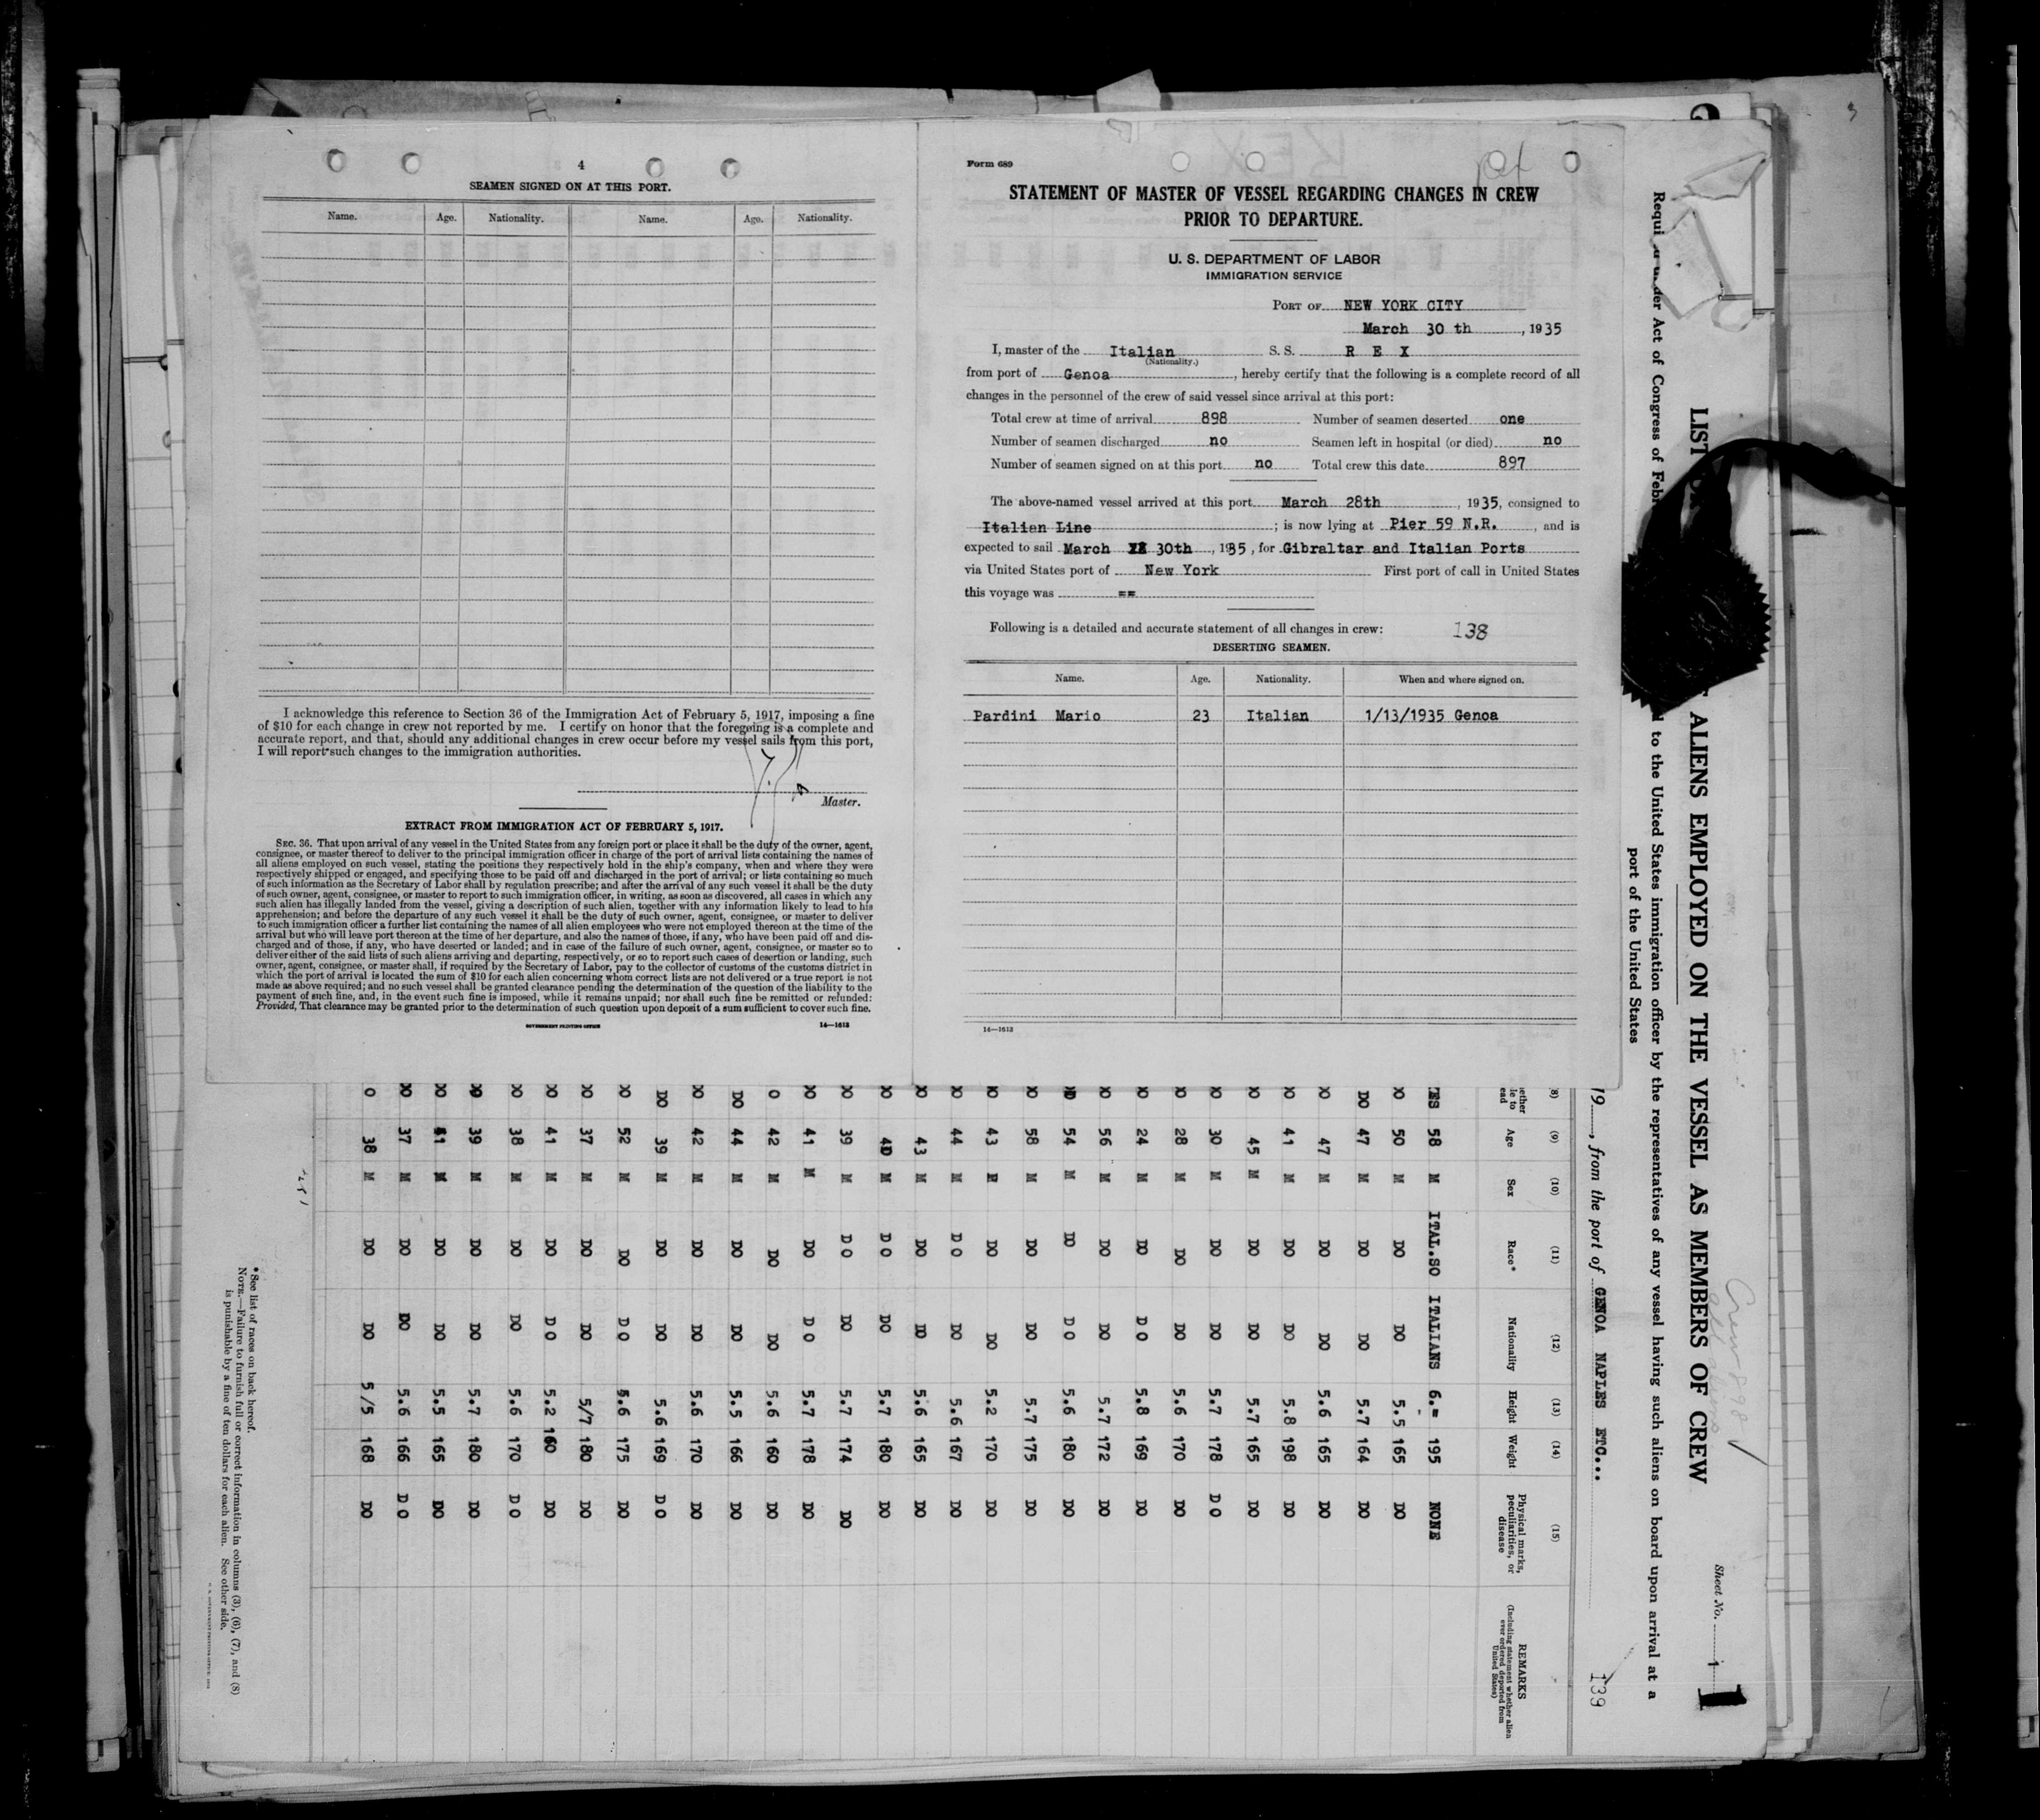 4
SEAMEN SIGNED ON AT THIS PORT.
Name. Age. Nationality. Name. Age. Nationality.
I acknowledge this reference to Section 36 of the Immigration Act of February 5, 1917, imposing a fine
of $10 for each change in crew not reported by me. I certify on honor that the foregoing is a complete and
accurate report, and that, should any additional changes in crew occur before my vessel sails from this port,
I will report such changes to the immigration authorities.
Master.
EXTRACT FROM IMMIGRATION ACT OF FEBRUARY 5, 1917.
SEC. 36. That upon arrival of any vessel in the United States from any foreign port or place it shall be the duty of the owner, agent,
consignee, or master thereof to deliver to the principal immigration officer in charge of the port of arrival lists containing the names of
all aliens employed on such vessel, stating the positions they respectively hold in the ship's company, when and where they were
respectively shipped or engaged, and specifying those to be paid off and discharged in the port of arrival; or lists containing so much
of such information as the Secretary of Labor shall by regulation prescribe; and after the arrival of any such vessel it shall be the duty
of such owner, agent, consignee, or master to report to such immigration officer, in writing, as soon as discovered, all cases in which any
such alien has illegally landed from the vessel, giving a description of such alien, together with any information likely to lead to his
apprehension; and before the departure of any such vessel it shall be the duty of such owner, agent, consignee, or master to deliver
to such immigration officer a further list containing the names of all alien employees who were not employed thereon at the time of the
arrival but who will leave port thereon at the time of her departure, and also the names of those, if any, who have been paid off and dis-
charged and of those, if any, who have deserted or landed; and in case of the failure of such owner, agent, consignee, or master so to
deliver either of the said lists of such aliens arriving and departing, respectively, or so to report such cases of desertion or landing, such
owner, agent, consignee, or master shall, if required by the Secretary of Labor, pay to the collector of customs of the customs district in
which the port of arrival is located the sum of $10 for each alien concerning whom correct lists are not delivered or a true report is not
made as above required; and no such vessel shall be granted clearance pending the determination of the question of the liability to the
payment of such fine, and, in the event such fine is imposed, while it remains unpaid; nor shall such fine be remitted or refunded:
Provided, That clearance may be granted prior to the determination of such question upon deposit of a sum sufficient to cover such fine.
GOVERNMENT PRINTING OFFICE 14—1613
Form 689
STATEMENT OF MASTER OF VESSEL REGARDING CHANGES IN CREW
PRIOR TO DEPARTURE.
U. S. DEPARTMENT OF LABOR
IMMIGRATION SERVICE
PORT OF NEW YORK CITY
March 30 th, 1935
I, master of the Italian S. S. R E X
(Nationality.)
from port of Genoa, hereby certify that the following is a complete record of all
changes in the personnel of the crew of said vessel since arrival at this port:
Total crew at time of arrival 898 Number of seamen deserted one
Number of seamen discharged no Seamen left in hospital (or died) no
Number of seamen signed on at this port no Total crew this date 897
The above-named vessel arrived at this port March 28th, 1935, consigned to
Italian Line; is now lying at Pier 59 N.R., and is
expected to sail March 30th, 1935, for Gibraltar and Italian Ports
via United States port of New York First port of call in United States
this voyage was ==
Following is a detailed and accurate statement of all changes in crew: 138
DESERTING SEAMEN.
Name. Age. Nationality. When and where signed on.
Pardini Mario 23 Italian 1/13/1935 Genoa
14—1613
Sheet No. 1
1
LIST ALIENS EMPLOYED ON THE VESSEL AS MEMBERS OF CREW
Crew 898
der Act of Congress of to the United States immigration officer by the representatives of any vessel having such aliens on board upon arrival at a
port of the United States
19, from the port of GENOA NAPLES ETC...
139
(8) (9) (10) (11) (12) (13) (14) (15)
Age Sex Race* Nationality Height Weight Physical marks, peculiarities, or disease REMARKS
(Including statement whether alien ever ordered deported from United States)
58 M ITAL.SO ITALIANS 6.= 195 NONE
DO 50 M DO DO 5.5 165 DO
DO 47 M DO DO 5.7 164 DO
DO 47 M DO DO 5.6 165 DO
DO 41 M DO DO 5.8 198 DO
DO 45 M DO DO 5.7 165 DO
DO 30 M DO DO 5.7 178 DO
DO 28 M DO DO 5.6 170 DO
DO 24 M DO DO 5.8 169 DO
DO 56 M DO DO 5.7 172 DO
DO 54 M DO DO 5.6 180 DO
DO 58 M DO DO 5.7 175 DO
DO 43 DO DO 5.2 170 DO
DO 44 M DO DO 5.6 167 DO
DO 43 M DO DO 5.6 165 DO
DO 40 M DO DO 5.7 180 DO
DO 39 M DO DO 5.7 174 DO
DO 41 M DO DO 5.7 178 DO
O 42 M DO DO 5.6 160 DO
DO 44 M DO DO 5.5 166 DO
DO 42 M DO DO 5.6 170 DO
DO 39 M DO DO 5.6 169 DO
DO 52 M DO DO 5.6 175 DO
DO 37 M DO DO 5/7 180 DO
DO 41 M DO DO 5.2 160 DO
DO 38 M DO DO 5.6 170 DO
DO 39 M DO DO 5.7 180 DO
DO 41 M DO DO 5.5 165 DO
DO 37 M DO DO 5.6 166 DO
O 38 M DO DO 5/5 168 DO
*See list of races on back hereof.
NOTE.—Failure to furnish full or correct information in columns (3), (6), (7), and (8)
is punishable by a fine of ten dollars for each alien. See other side.